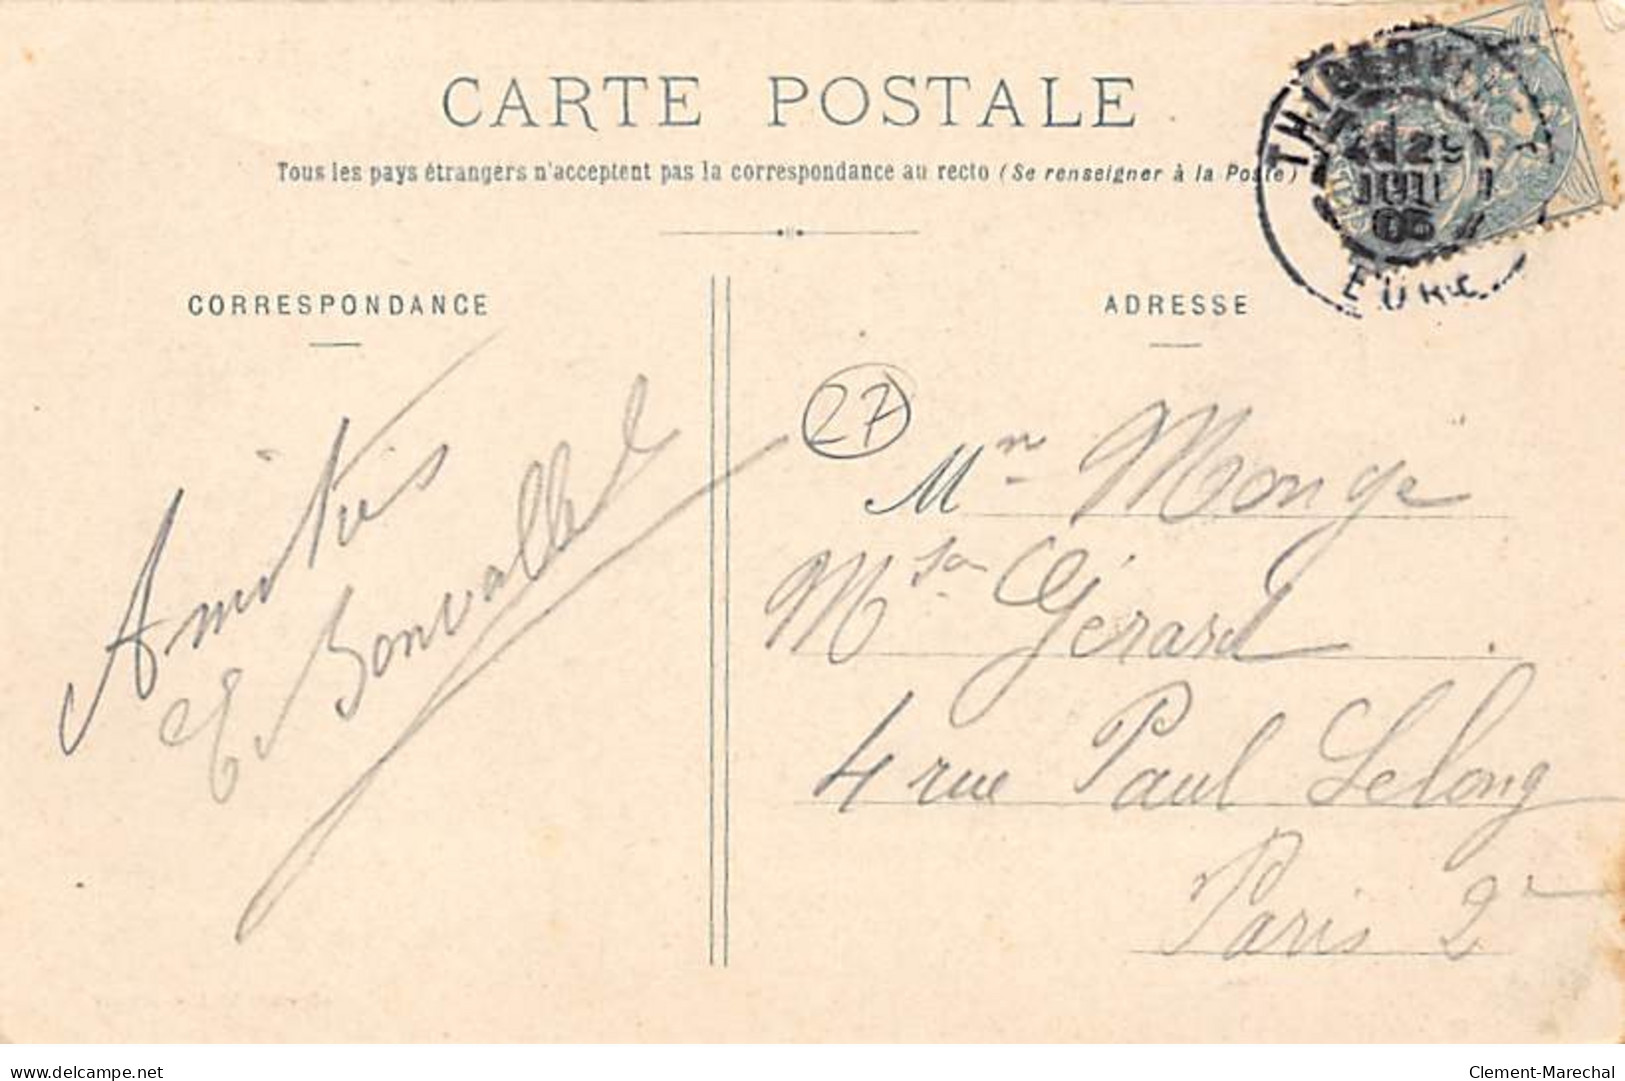 CARTE POSTALE
Tous les pays étrangers n'acceptent pas la correspondance au recto (Se renseigner à la Poste)
THIBERV
29
JUIL
05
EURE
CORRESPONDANCE
ADRESSE
27
Amitiés
E Bonvallet
Mon Monge
Mson Gérard
4 rue Paul Lelong
Paris 2e
delcampe.net
Clement-Marechal